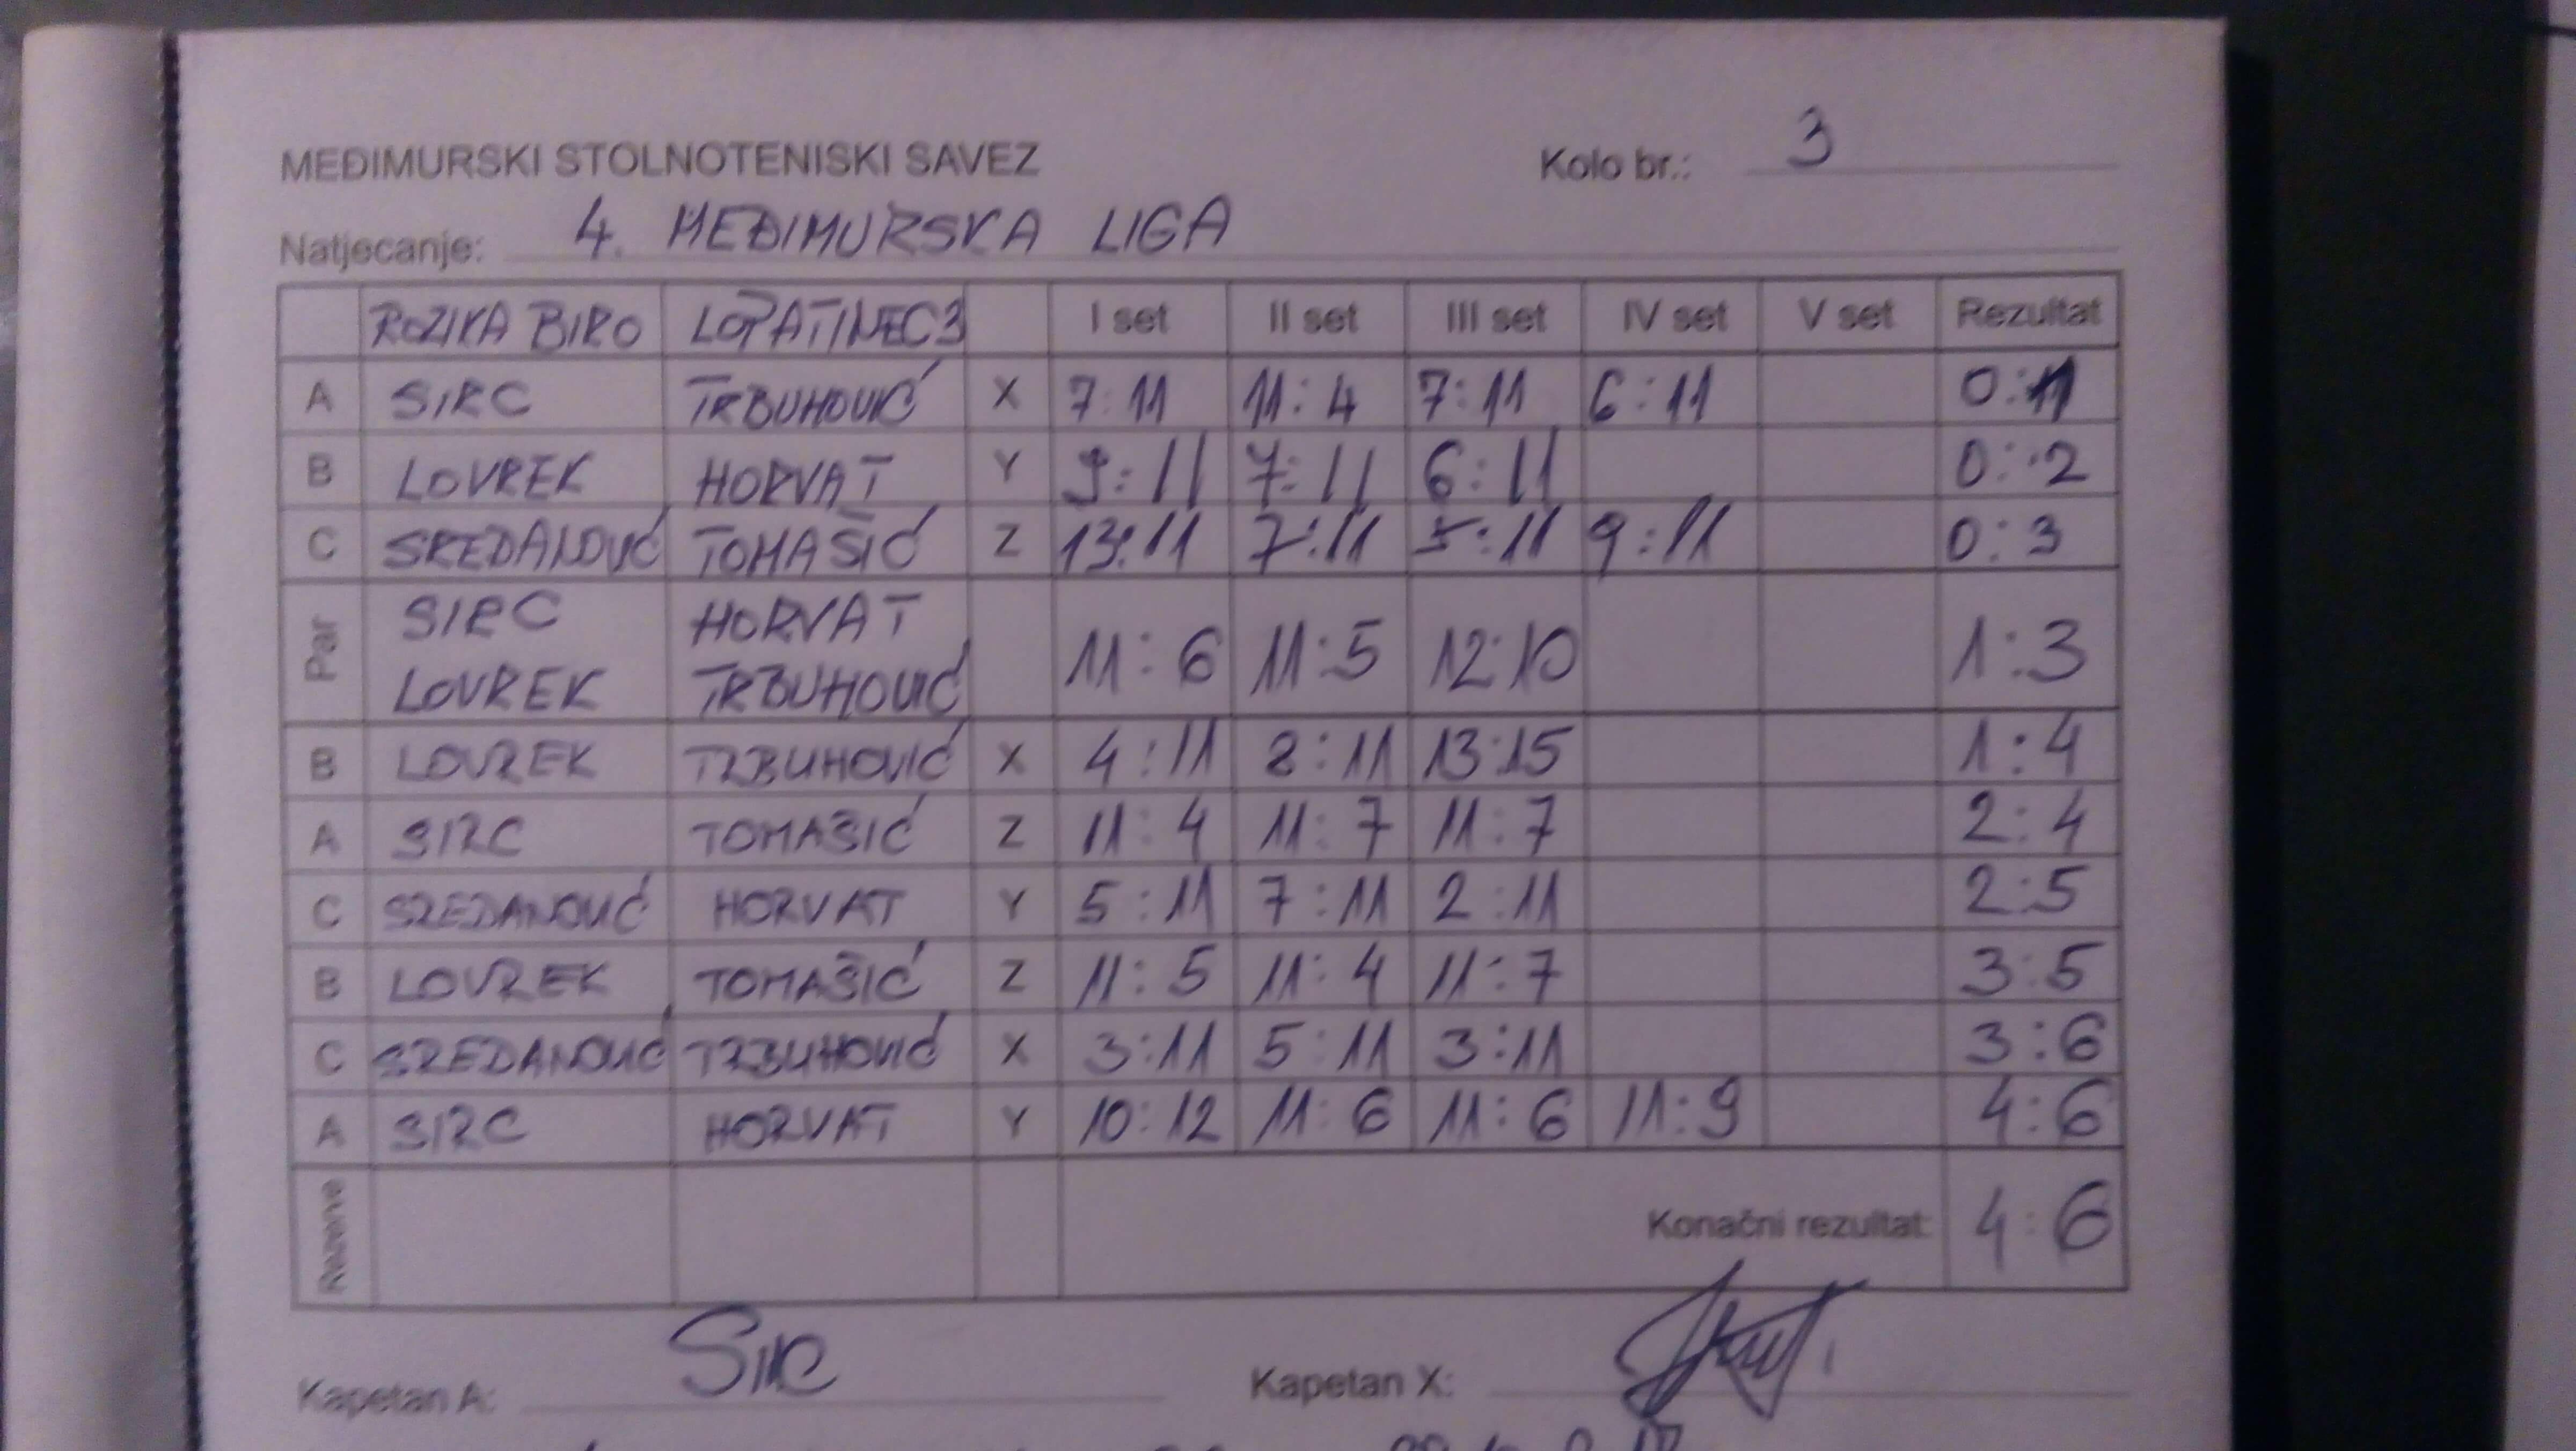 MEĐIMURSKI STOLNOTENISKI SAVEZ Kolo br.: 3
Natjecanje: 4. MEĐIMURSKA LIGA
ROZIKA BIRO LOPATINEC 3 I set II set III set IV set V set Rezultat
A SIRC TRBUHOVIĆ X 7:11 11:4 7:11 6:11 0:1
B LOVREK HORVAT Y 9:11 7:11 6:11 0:2
C SREDANOVIĆ TOMAŠIĆ Z 13:11 7:11 5:11 9:11 0:3
Par SIRC HORVAT 11:6 11:5 12:10 1:3
LOVREK TRBUHOVIĆ
B LOVREK TRBUHOVIĆ X 4:11 8:11 13:15 1:4
A SIRC TOMAŠIĆ Z 11:4 11:7 11:7 2:4
C SREDANOVIĆ HORVAT Y 5:11 7:11 2:11 2:5
B LOVREK TOMAŠIĆ Z 11:5 11:4 11:7 3:5
C SREDANOVIĆ TRBUHOVIĆ X 3:11 5:11 3:11 3:6
A SIRC HORVAT Y 10:12 11:6 11:6 11:9 4:6
Rezerve Konačni rezultat: 4:6
Kapetan A: Sirc Kapetan X: